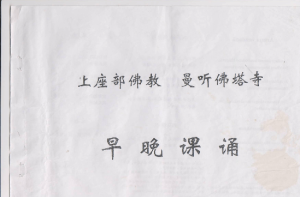 上座部佛教　曼听佛塔寺
早晚课诵